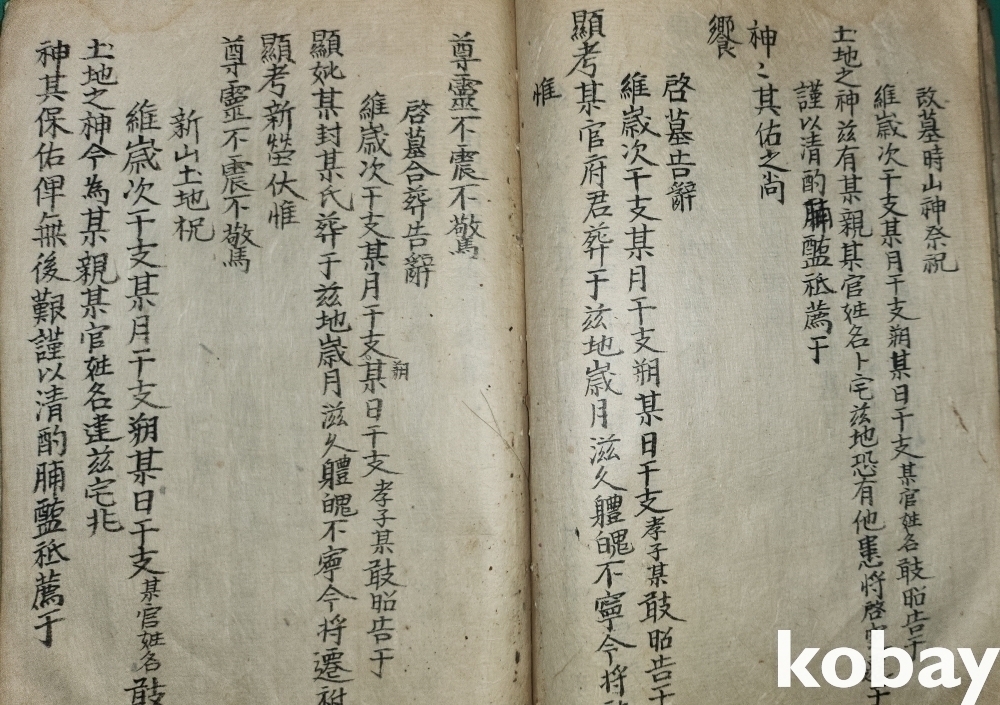 改墓時山神祭祝
維歲次干支某月干支朔某日干支某官姓名敢昭告于
土地之神兹有某親某官姓名卜宅兹地恐有他患將啓
謹以清酌脯醢祗薦于
神〻其佑之尚
饗
啓墓告辭
維歲次干支某月干支朔某日干支孝子某敢昭告于
顯考某官府君葬于兹地歲月滋久體魄不寧今將
惟
尊靈不震不驚
啓墓合葬告辭
維歲次干支某月干支朔某日干支孝子某敢昭告于
顯妣某封某氏葬于兹地歲月滋久體魄不寧今將遷祔
顯考新塋伏惟
尊靈不震不驚
新山土地祝
維歲次干支某月干支朔某日干支某官姓名敢
土地之神今為某親某官姓名建兹宅兆
神其保佑俾無後艱謹以清酌脯醢祗薦于
kobay